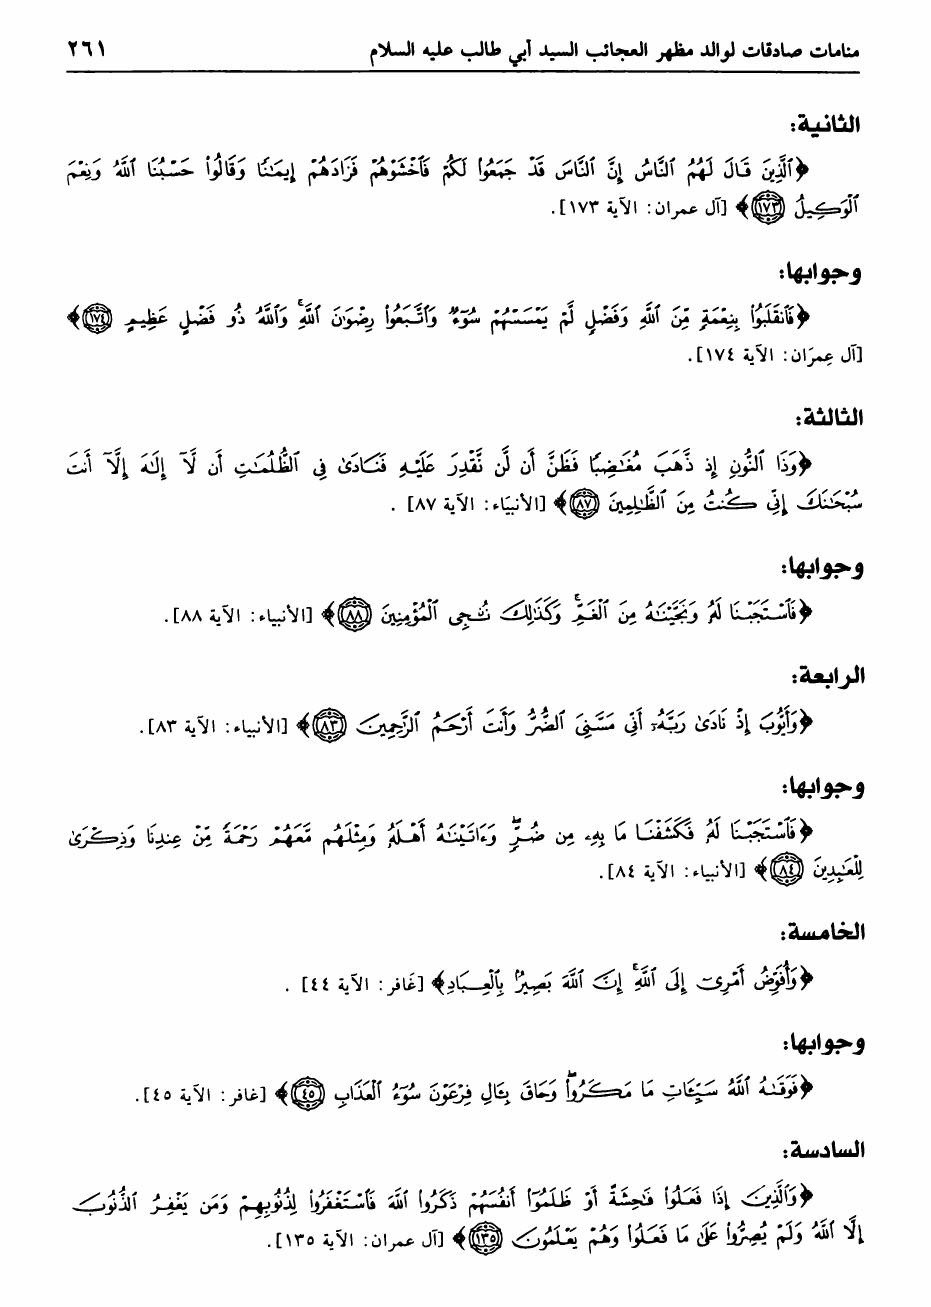 منامات صادقات لوالد مظهر العجائب السيد أبي طالب عليه السلام ٢٦١
الثانية:
﴿ٱلَّذِينَ قَالَ لَهُمُ ٱلنَّاسُ إِنَّ ٱلنَّاسَ قَدْ جَمَعُوا۟ لَكُمْ فَٱخْشَوْهُمْ فَزَادَهُمْ إِيمَـٰنًا وَقَالُوا۟ حَسْبُنَا ٱللَّهُ وَنِعْمَ
ٱلْوَكِيلُ ١٧٣﴾ [آل عمران: الآية ١٧٣].
وجوابها:
﴿فَٱنقَلَبُوا۟ بِنِعْمَةٍ مِّنَ ٱللَّهِ وَفَضْلٍ لَّمْ يَمْسَسْهُمْ سُوٓءٌ وَٱتَّبَعُوا۟ رِضْوَٰنَ ٱللَّهِ ۗ وَٱللَّهُ ذُو فَضْلٍ عَظِيمٍ ١٧٤﴾
[آل عِمرَان: الآية ١٧٤].
الثالثة:
﴿وَذَا ٱلنُّونِ إِذ ذَّهَبَ مُغَـٰضِبًا فَظَنَّ أَن لَّن نَّقْدِرَ عَلَيْهِ فَنَادَىٰ فِى ٱلظُّلُمَـٰتِ أَن لَّآ إِلَـٰهَ إِلَّآ أَنتَ
سُبْحَـٰنَكَ إِنِّى كُنتُ مِنَ ٱلظَّـٰلِمِينَ ٨٧﴾ [الأنبيَاء: الآية ٨٧] .
وجوابها:
﴿فَٱسْتَجَبْنَا لَهُۥ وَنَجَّيْنَـٰهُ مِنَ ٱلْغَمِّ ۚ وَكَذَٰلِكَ نُـۨجِى ٱلْمُؤْمِنِينَ ٨٨﴾ [الأنبياء: الآية ٨٨].
الرابعة:
﴿وَأَيُّوبَ إِذْ نَادَىٰ رَبَّهُۥٓ أَنِّى مَسَّنِىَ ٱلضُّرُّ وَأَنتَ أَرْحَمُ ٱلرَّٰحِمِينَ ٨٣﴾ [الأنبياء: الآية ٨٣].
وجوابها:
﴿فَٱسْتَجَبْنَا لَهُۥ فَكَشَفْنَا مَا بِهِۦ مِن ضُرٍّ ۖ وَءَاتَيْنَـٰهُ أَهْلَهُۥ وَمِثْلَهُم مَّعَهُمْ رَحْمَةً مِّنْ عِندِنَا وَذِكْرَىٰ
لِلْعَـٰبِدِينَ ٨٤﴾ [الأنبياء: الآية ٨٤].
الخامسة:
﴿وَأُفَوِّضُ أَمْرِىٓ إِلَى ٱللَّهِ ۚ إِنَّ ٱللَّهَ بَصِيرٌۢ بِٱلْعِبَادِ﴾ [غَافر: الآية ٤٤] .
وجوابها:
﴿فَوَقَىٰهُ ٱللَّهُ سَيِّـَٔاتِ مَا مَكَرُوا۟ ۖ وَحَاقَ بِـَٔالِ فِرْعَوْنَ سُوٓءُ ٱلْعَذَابِ ٤٥﴾ [غافر: الآية ٤٥].
السادسة:
﴿وَٱلَّذِينَ إِذَا فَعَلُوا۟ فَـٰحِشَةً أَوْ ظَلَمُوٓا۟ أَنفُسَهُمْ ذَكَرُوا۟ ٱللَّهَ فَٱسْتَغْفَرُوا۟ لِذُنُوبِهِمْ وَمَن يَغْفِرُ ٱلذُّنُوبَ
إِلَّا ٱللَّهُ وَلَمْ يُصِرُّوا۟ عَلَىٰ مَا فَعَلُوا۟ وَهُمْ يَعْلَمُونَ ١٣٥﴾ [آل عمران: الآية ١٣٥].